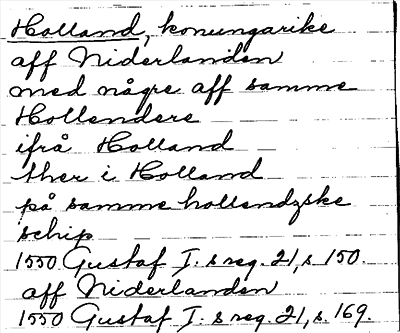 Holland, konungarike
aff Niderlanden
med någre aff samme
Hollendere
ifrå Holland
ther i Holland
på samme hollendzske
schip
1550 Gustaf I:s reg. 21, s. 150.
aff Niderlanden
1550 Gustaf I:s reg. 21, s. 169.